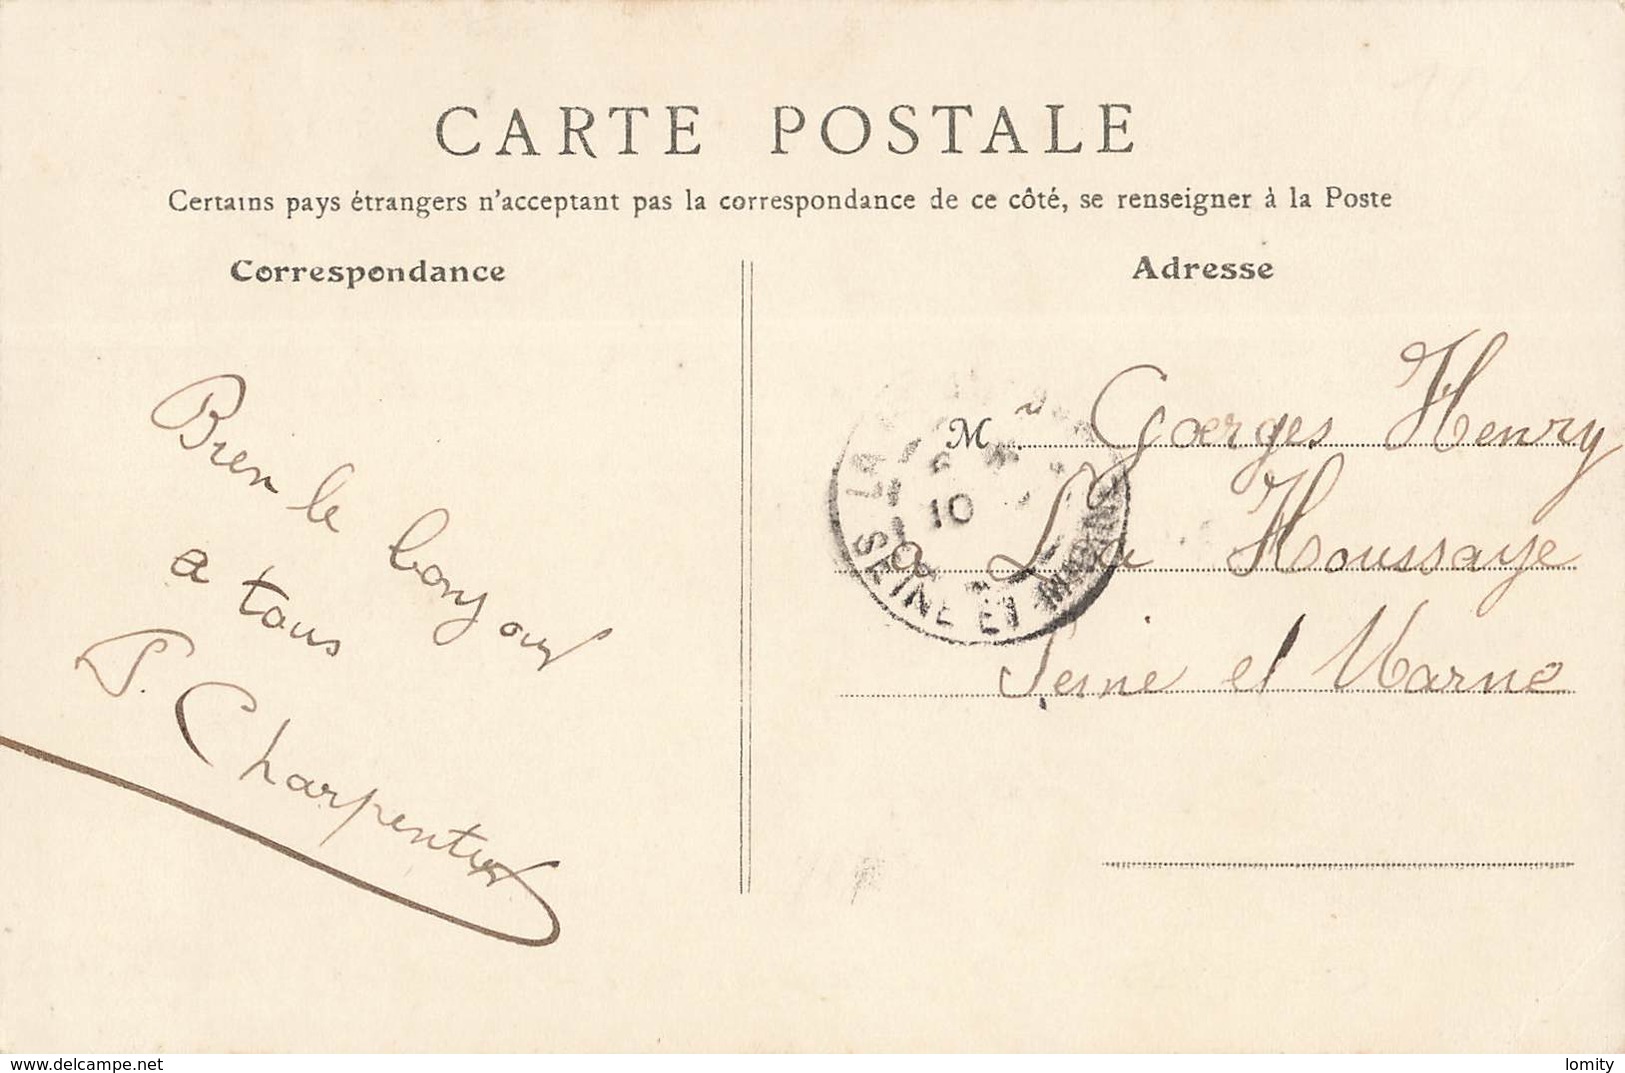 CARTE POSTALE
Certains pays étrangers n'acceptant pas la correspondance de ce côté, se renseigner à la Poste
Correspondance
Adresse
Bien le bonjour
a tous
P. Charpentier
M r Goerges Henry
a La Houssaye
Seine et Marne
LA
10
SEINE ET MARNE
www.delcampe.net
lomity